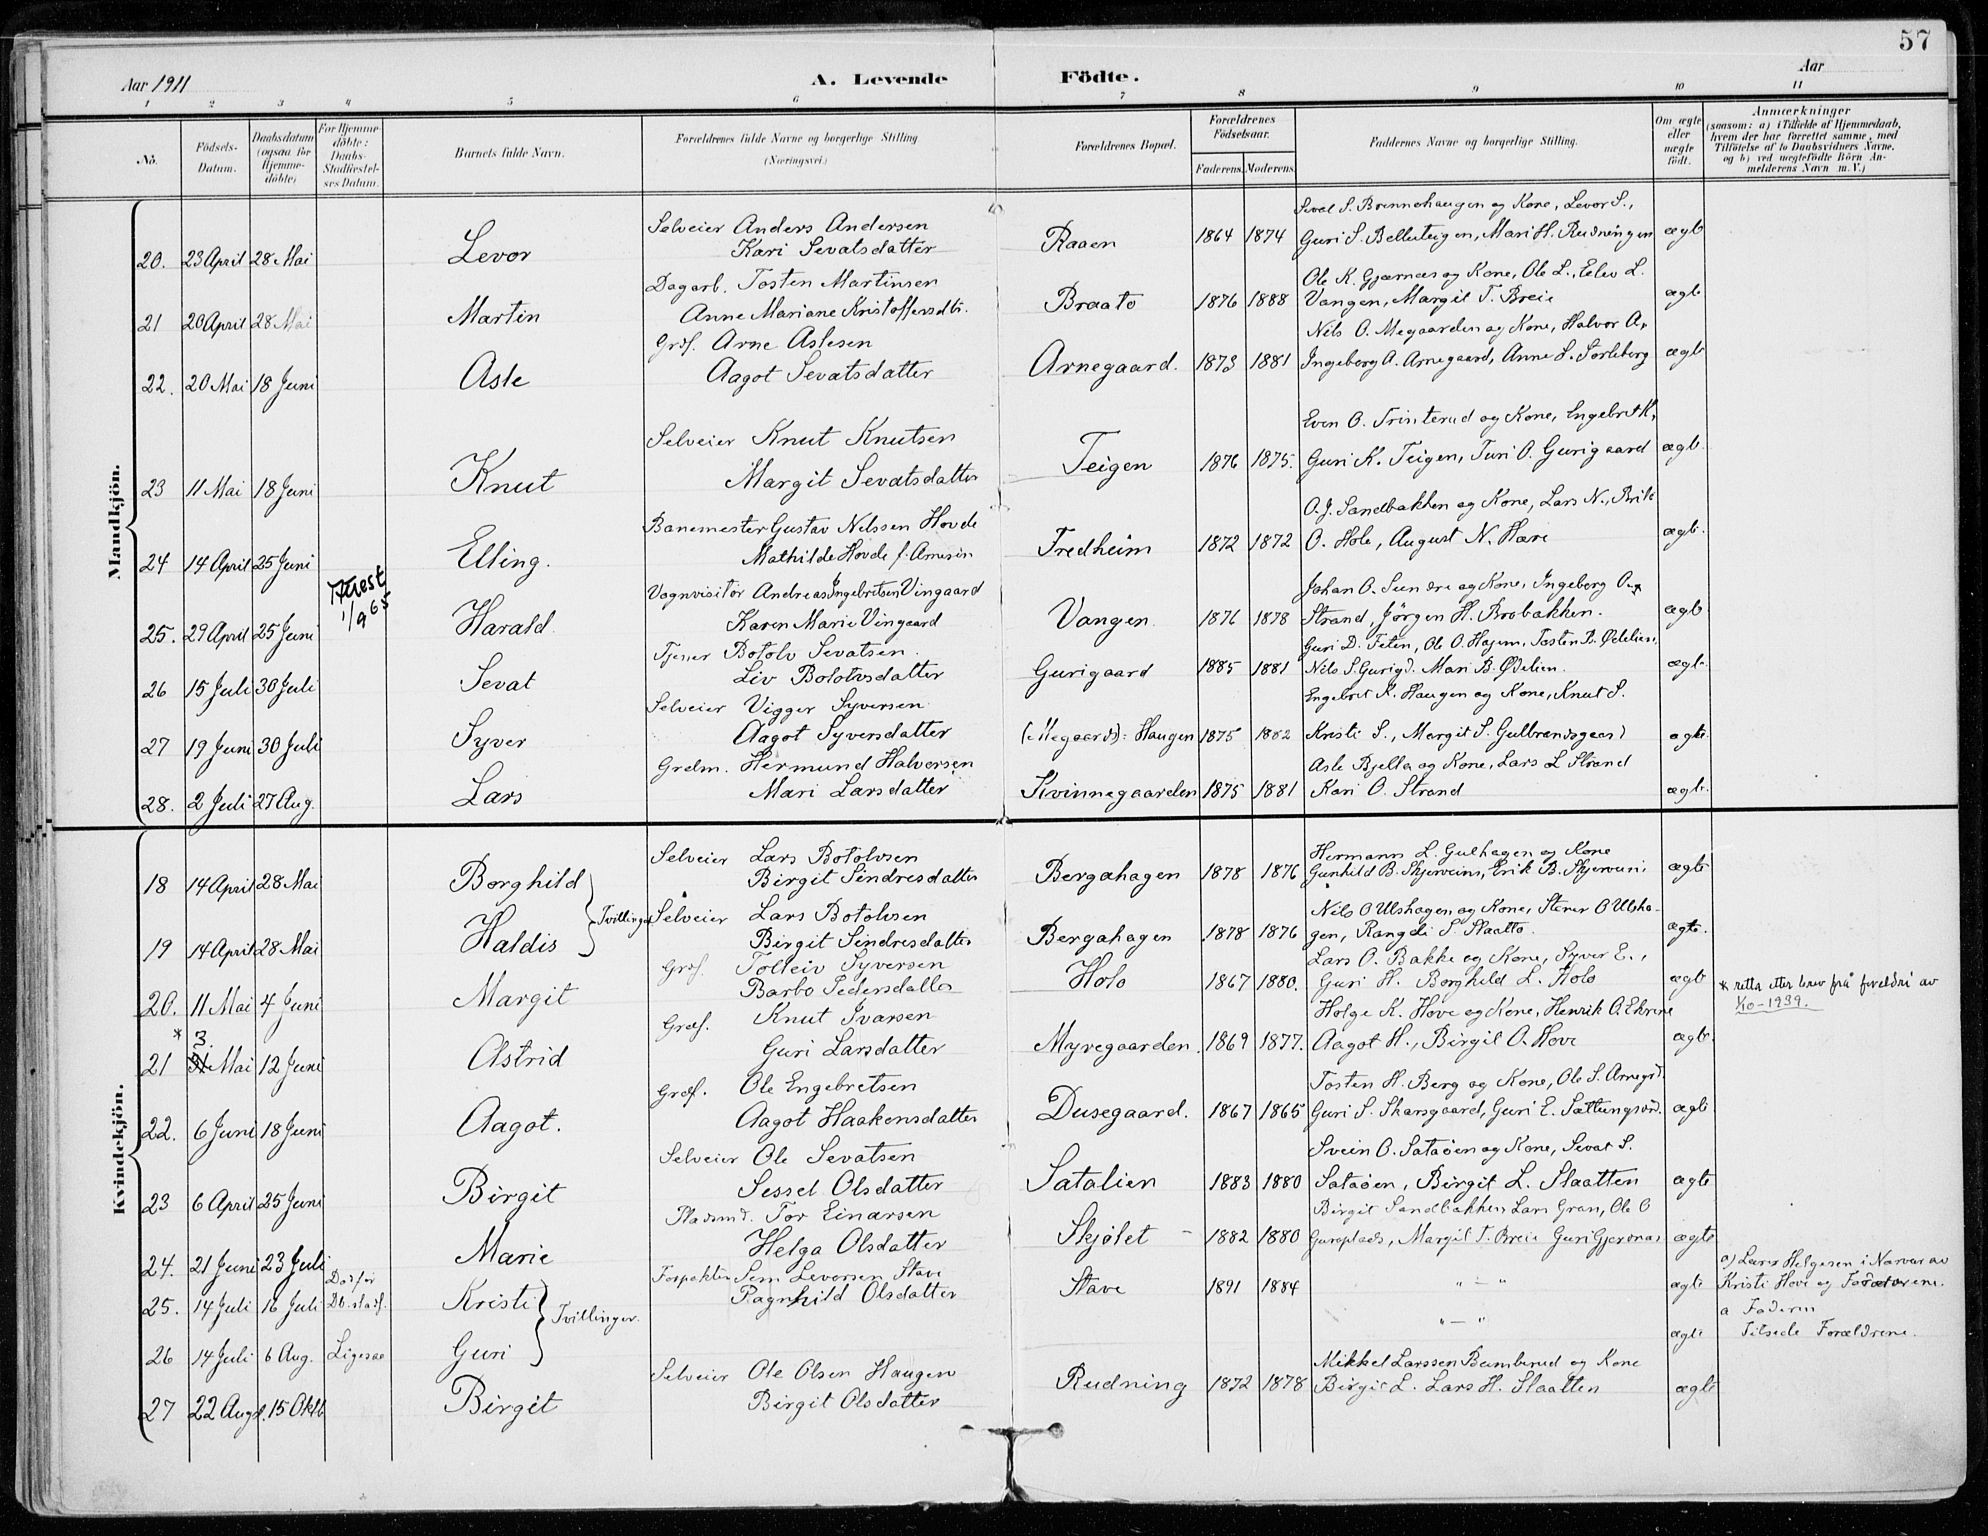 57
Aar 1911 A. Levende Födte. Aar
1 2 3 4 5 6 7 8 9 10 11
No.
Fødsels-Datum.
Daabsdatum (ogsaa for Hjemme-döbte)
For Hjemme-döbte: Daabs-Stadfæstel-ses Datum.
Barnets fulde Navn.
Forældrenes fulde Navne og borgerlige Stilling (Næringsvei.)
Forældrenes Bopæl.
Forældrenes Födselsaar.
Faderens. Moderens.
Faddernes Navne og borgerlige Stilling.
Om ægte eller uægte födt.
Anmærkninger
(saasom: a) i Tilfælde af Hjemmedaab,
hvem der har forrettet samme, med
Tilföielse af to Daabsvidners Navne,
og b) ved uægtefödte Börn An-
melderens Navn m.V.)
Mandkjön.
Sevat S. Brennehaugen og Kone, Levor S.,
Selveier Anders Andersen
20. 23 April 28 Mai Levor Kari Sevatsdatter Raaen 1864 1874 Guri S. Belleteigen, Mari H. Rudningen ægte
Dagarb. Tosten Martinsen Ole K. Gjærnes og Kone, Ole L., Eelev L.
21 20 April 28 Mai Martin Anne Mariane Kristoffersdtr. Braato 1876 1888 Vangen, Margit T. Breie ægte
Grdf. Arne Aslesen Nils O. Megaarden og Kone, Halvor A.,
22. 20 Mai 18 Juni Asle Aagot Sevatsdatter Arnegaard. 1873 1881 Ingeborg A. Arnegaard, Anne S. Sørleberg ægte
Selveier Knut Knutsen Even O. Trinterud og Kone, Engebret K,
23 11 Mai 18 Juni Knut Margit Sevatsdatter Teigen 1876 1875. Guri K. Teigen, Turi O. Gurigaard ægte
Banemester Gustav Nilssen Hovde O. J. Sandbakken og Kone, Lars N., Brit
24 14 April 25 Juni Elling. Mathilde Hovde f. Arnesen Fredheim 1872 1872 O. Hole, August N. Hære ægte.
1/9 65
Vognvisitør Andreas Ingebretsen Vingaard Johan O. Sundre og Kone, Ingeborg O.
25. 29 April 25 Juni Harald. Karen Marie Vingaard Vangen. 1876 1878 Strand, Jørgen H. Brobakken. ægte
Tjener Botolv Sevatsen. Guri D. Feten, Ole O. Hagen, Tosten B. Ødelien,
26 15 Juli 30 Juli Sevat Liv Botolvsdatter Gurigaard 1885 1881 Nils S. Gurigd. Mari B. Ødelien. ægte
Selveier Vigger Syversen Engebret K. Haugen og Kone, Knut S.
27 19 Juni 30 Juli Syver Aagot Syversdatter (Megaard): Haugen 1875 1882 Kristi S., Margit S. Gulbrandsgaard ægte
Grdm. Hermund Halvorsen Asle Bjella og Kone, Lars L Strand
28. 2 Juli 27 Aug. Lars Mari Larsdatter Kvinnegaarden 1875 1881 Kari O. Strand ægte.
Kvindekjön.
Selveier Lars Botolvsen Hermann L. Gulhagen og Kone
18 14 April 28 Mai Borghild Birgit Sindresdatter Bergahagen 1878 1876 Gunhild B. Skjerveim, Erik B. Skjerveim ægte
Tvillinger
Selveier Lars Botolvsen Nils O Ulshagen og Kone, Stener O Ulsha-
19 14 April 28 Mai Haldis Birgit Sindresdatter Bergahagen 1878 1876 gen, Rangdi S. Slaatto. ægte.
Grdf. Tolleiv Syversen Lars O. Bakke og Kone, Syver E.,
20. 11 Mai 4 Juni Margit Barbo Pedersdatter Holo 1867 1880. Guri H. Borghild L. Holo ægte
* retta etter brev frå foreldri av
1/10-1939.
Grdf. Knut Ivarsen Holge K. Hove og Kone, Henrik O. Ekrene
* 3.
21 31 Mai 12 Juni Astrid Guri Larsdatter Myregaarden. 1869 1877. Aagot H., Birgit O. Hove ægte
Grdf. Ole Engebretsen Tosten H. Berg og Kone, Ole S. Arnegrd.
22. 6 Juni 18 Juni Aagot. Aagot Haakensdatter Dusegaard. 1867 1865 Guri S. Skarsgaard, Guri E. Sætungsrd. ægte
Selveier Ole Sevatsen Svein O. Sataøen og Kone, Sevat S.
23 6 April 25 Juni Birgit Sessel Olsdatter Satalien 1883 1880 Sataøen, Birgit L. Slaatten ægte
Pladsmd. Tor Einarsen Birgit Sandbakken, Lars Gran, Ole O
24. 21 Juni 23 Juli Marie Helga Olsdatter Skjølet 1882 1880 Guroplads, Margit T. Breie Guri Gjerdnes ægte
Forpakter Sem Levorsen Stave
25. 14 Juli 16 Juli Db. stadf. Kristi Ragnhild Olsdatter Stave 1891 1884 " — " ægte
a) Lars Helgesen i Nærvær av
Kristi Hove og Forældrene.
Tvillinger.
26 14 Juli 6 Aug. Ligesaa Guri " — " ægte
a Faderen
Tilstede Forældrene.
Selveier Ole Olsen Haugen Mikkel Larssen Bumberud og Kone
27 22 Aug. 15 Oktb Birgit Birgit Olsdatter Rudning 1872 1878 Birgit L. Lars H. Slaatten ægte